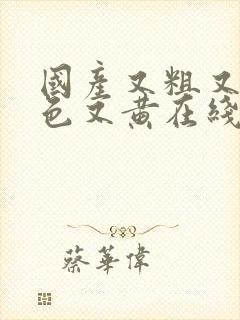 國產又粗又
色又黃在綫
蔡華偉